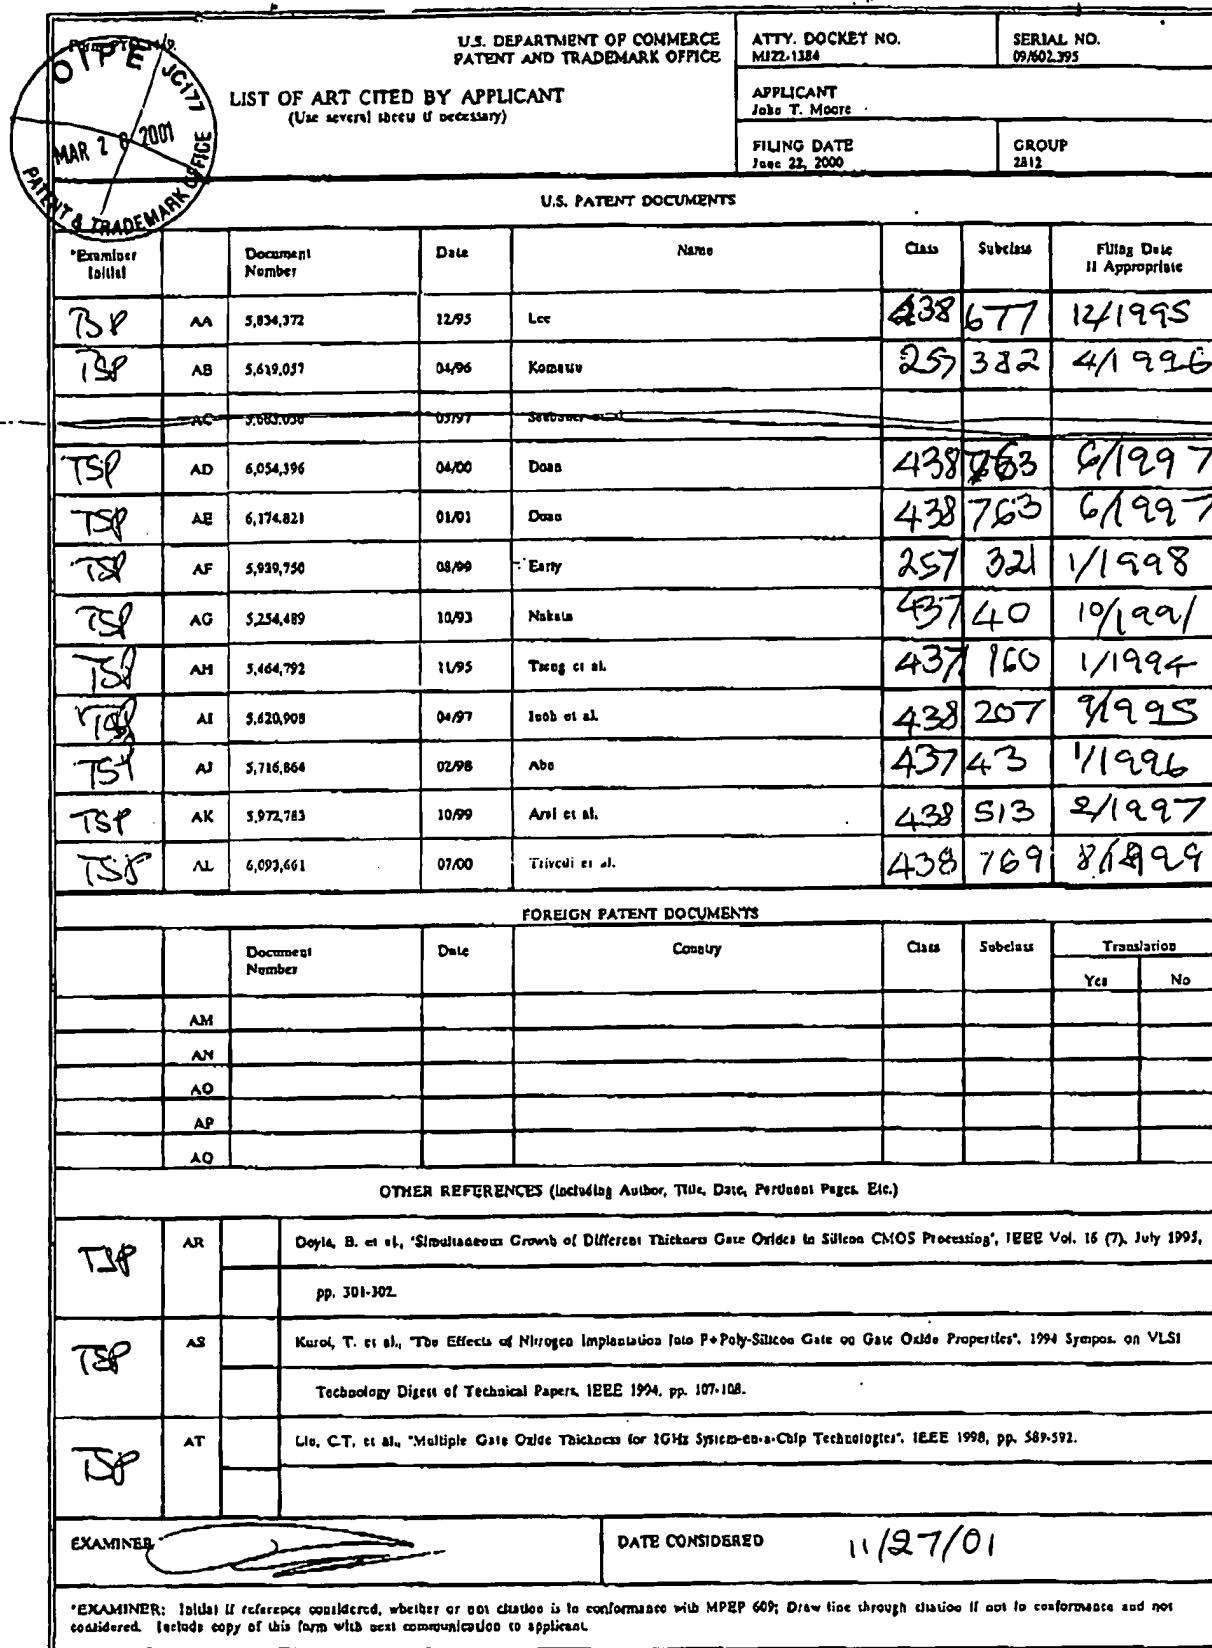 Form PTO-1449
OIPE JC177
MAR 2 8 2001
PATENT & TRADEMARK OFFICE
U.S. DEPARTMENT OF COMMERCE
PATENT AND TRADEMARK OFFICE
LIST OF ART CITED BY APPLICANT
(Use several sheets if necessary)
ATTY. DOCKET NO.
MI22-1384
SERIAL NO.
09/602,395
APPLICANT
John T. Moore
FILING DATE
June 22, 2000
GROUP
2812
U.S. PATENT DOCUMENTS
*Examiner Initial Document Number Date Name Class Subclass Filing Date If Appropriate
TSP AA 5,834,372 12/95 Lee 438 677 12/1995
TSP AB 5,619,057 04/96 Komatsu 257 382 4/1996
AC 03/97
TSP AD 6,054,396 04/00 Doan 438 763 6/1997
TSP AE 6,174,821 01/01 Doan 438 763 6/1997
TSP AF 5,939,750 08/99 Early 257 321 1/1998
TSP AG 5,254,489 10/93 Nakata 437 40 10/1991
TSP AH 5,464,792 11/95 Tseng et al. 437 160 1/1994
TSP AI 5,620,908 04/97 Inoh et al. 438 207 9/1995
TSP AJ 5,716,864 02/98 Abe 437 43 1/1996
TSP AK 5,972,783 10/99 Arai et al. 438 513 2/1997
TSP AL 6,093,661 07/00 Trivedi et al. 438 769 8/1999
FOREIGN PATENT DOCUMENTS
Document Number Date Country Class Subclass Translation
Yes No
AM
AN
AO
AP
AQ
OTHER REFERENCES (Including Author, Title, Date, Pertinent Pages, Etc.)
TSP AR Doyle, B. et al., "Simultaneous Growth of Different Thickness Gate Oxides in Silicon CMOS Processing", IEEE Vol. 16 (7), July 1995,
pp. 301-302.
TSP AS Kuroi, T. et al., "The Effects of Nitrogen Implantation Into P+Poly-Silicon Gate on Gate Oxide Properties", 1994 Sympos. on VLSI
Technology Digest of Technical Papers, IEEE 1994, pp. 107-108.
TSP AT Liu, C.T. et al., "Multiple Gate Oxide Thickness for 2GHz System-on-a-Chip Technologies", IEEE 1998, pp. 589-592.
EXAMINER
DATE CONSIDERED 11/27/01
*EXAMINER: Initial if reference considered, whether or not citation is in conformance with MPEP 609; Draw line through citation if not in conformance and not
considered. Include copy of this form with next communication to applicant.